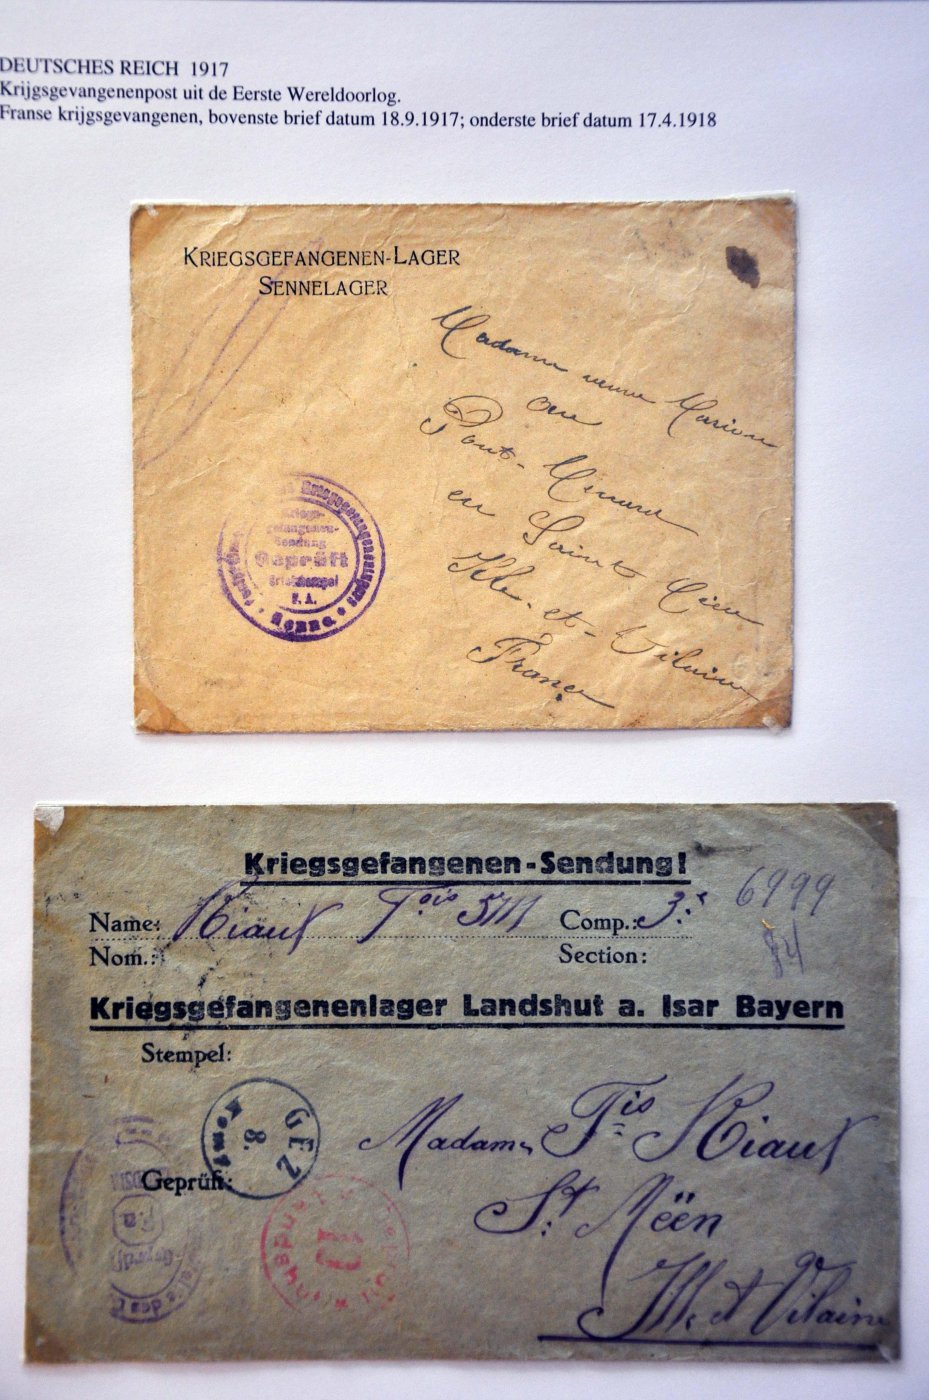 DEUTSCHES REICH 1917
Krijgsgevangenenpost uit de Eerste Wereldoorlog.
Franse krijgsgevangenen, bovenste brief datum 18.9.1917; onderste brief datum 17.4.1918
KRIEGSGEFANGENEN-LAGER
SENNELAGER
Madame veuve
au
Pont-
en Saint
Ille-et-Vilaine
France
Kriegs-
gefangenen-
Sendung
Geprüft
F. A.
Senne
Kriegsgefangenen-Sendung!
Name: Riaux Fois Comp.: 3e
6999
84
Nom.:
Section:
Kriegsgefangenenlager Landshut a. Isar Bayern
Stempel:
GEZ
8.
Komp.
Geprüft:
Madame Fois Riaux
St Méën
Ille et Vilaine